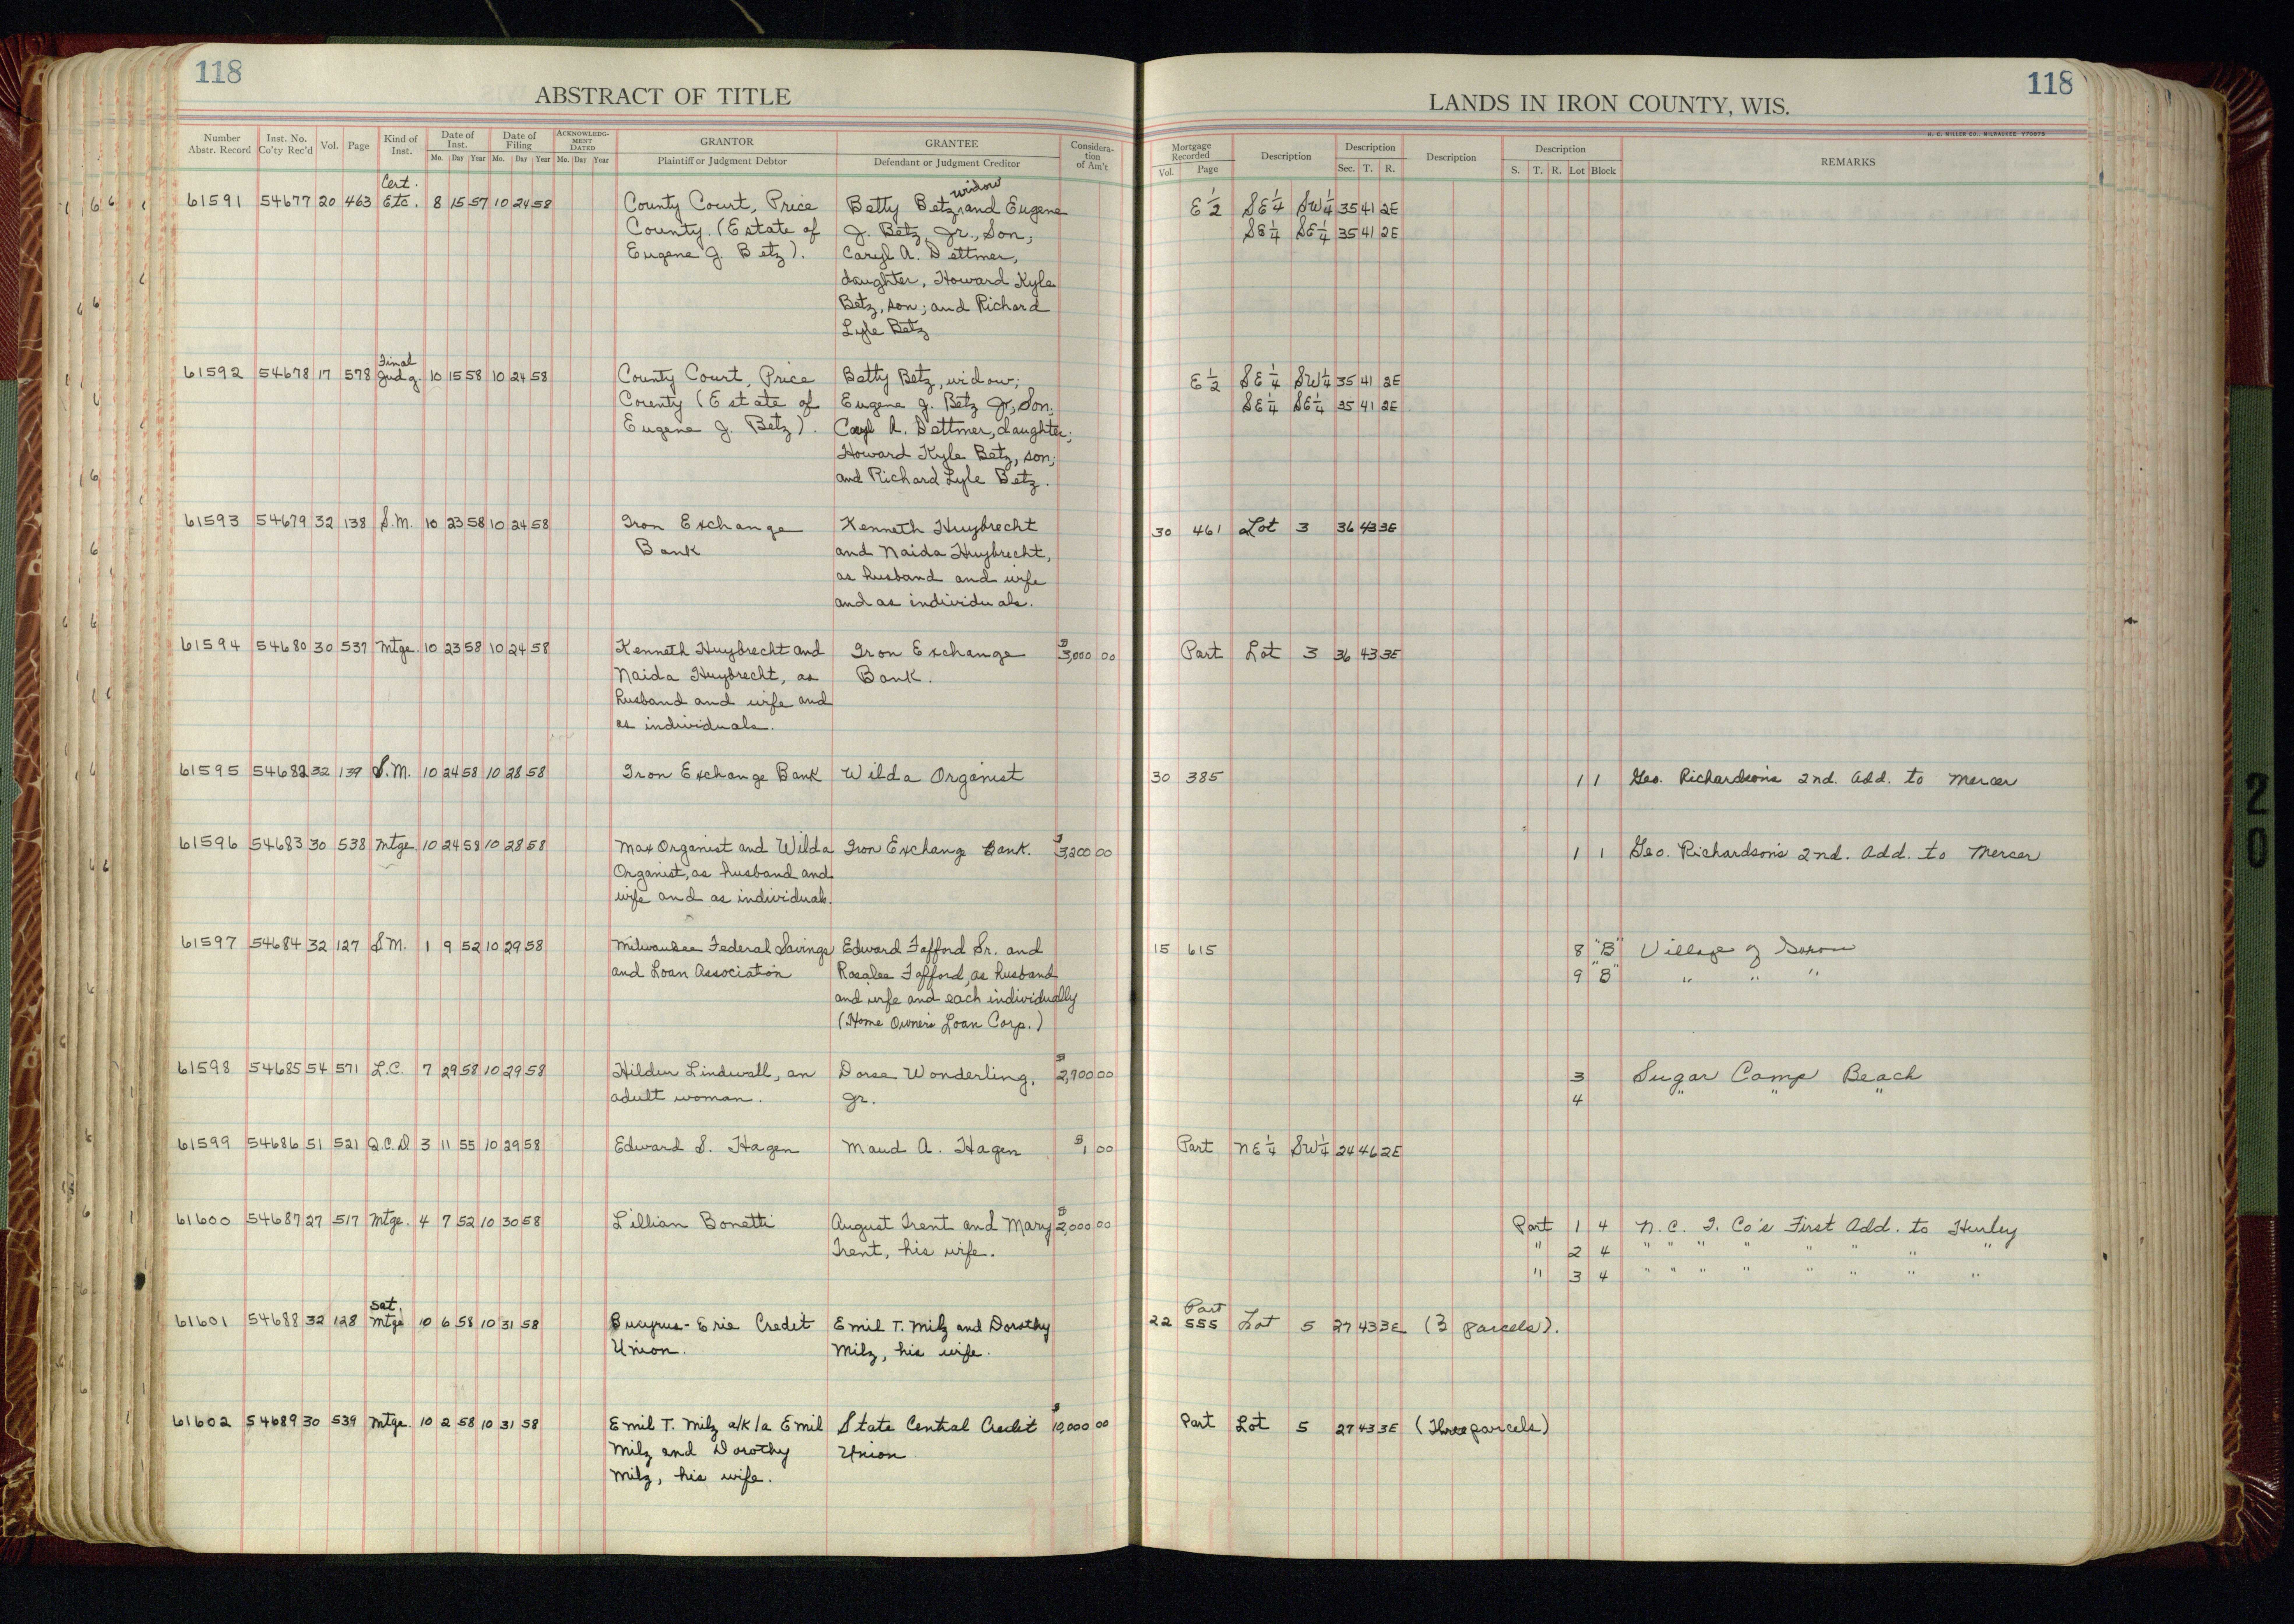 118
ABSTRACT OF TITLE
Number Abstr. Record Inst. No. Co'ty Rec'd Vol. Page Kind of Inst. Date of Inst. Mo. Day Year Date of Filing Mo. Day Year ACKNOWLEDGMENT DATED Mo. Day Year GRANTOR Plaintiff or Judgment Debtor GRANTEE Defendant or Judgment Creditor Consideration of Am't
118
LANDS IN IRON COUNTY, WIS.
H. C. MILLER CO., MILWAUKEE
Mortgage Recorded Vol. Page Description Description Sec. T. R. Description Description S. T. R. Lot Block REMARKS
Cert. widow
61591 54677 20 463 Etc. 8 15 57 10 24 58 County Court, Price Betty Betz, and Eugene E 1/2 SE 1/4 SW 1/4 35 41 2E
County. (Estate of J. Betz, Jr., Son, SE 1/4 SE 1/4 35 41 2E
Eugene J. Betz). Caryl A. Dettmer,
daughter, Howard Kyle
Betz, son; and Richard
Lyle Betz
Final
61592 54678 17 578 Judg. 10 15 58 10 24 58 County Court, Price Betty Betz, widow; E 1/2 SE 1/4 SW 1/4 35 41 2E
County (Estate of Eugene J. Betz Jr., Son; SE 1/4 SE 1/4 35 41 2E
Eugene J. Betz). Caryl A. Dettmer, daughter;
Howard Kyle Betz, son;
and Richard Lyle Betz.
61593 54679 32 138 S.M. 10 23 58 10 24 58 Iron Exchange Kenneth Huybrecht 30 461 Lot 3 36 43 3E
Bank and Naida Huybrecht,
as husband and wife
and as individuals.
61594 54680 30 537 Mtge. 10 23 58 10 24 58 Kenneth Huybrecht and Iron Exchange $3,000 00 Part Lot 3 36 43 3E
Naida Huybrecht, as Bank.
husband and wife and
as individuals.
61595 54682 32 139 S.M. 10 24 58 10 28 58 Iron Exchange Bank Wilda Organist 30 385 1 1 Geo. Richardson's 2nd. Add. to Mercer
61596 54683 30 538 Mtge. 10 24 58 10 28 58 Max Organist and Wilda Iron Exchange Bank. $3,200 00 1 1 Geo. Richardson's 2nd. Add. to Mercer
Organist, as husband and
wife and as individuals.
61597 54684 32 127 S.M. 1 9 52 10 29 58 Milwaukee Federal Savings Edward Fafford Sr. and 15 615 8 "B" Village of Saxon
and Loan Association Rosalee Fafford, as husband 9 "B" " " "
and wife and each individually
(Home Owner's Loan Corp.)
61598 54685 54 571 L.C. 7 29 58 10 29 58 Hildur Lindwall, an Dorsa Wonderling, $2,900 00 3 Sugar Camp Beach
adult woman. Jr. 4 " " "
61599 54686 51 521 Q.C.D 3 11 55 10 29 58 Edward S. Hagen Maud A. Hagen $1 00 Part NE 1/4 SW 1/4 24 46 2E
61600 54687 27 517 Mtge. 4 7 52 10 30 58 Lillian Bonetti August Trent and Mary $2,000 00 Part 1 4 N.C. I. Co's First Add. to Hurley
Trent, his wife. " 2 4 " " " " " " " "
" 3 4 " " " " " " " "
Sat. Part
61601 54688 32 128 Mtge 10 6 58 10 31 58 Bucyrus-Erie Credit Emil T. Milz and Dorothy 22 555 Lot 5 27 43 3E (3 parcels).
Union. Milz, his wife.
61602 54689 30 539 Mtge. 10 2 58 10 31 58 Emil T. Milz a/k/a Emil State Central Credit $10,000 00 Part Lot 5 27 43 3E (Three parcels)
Milz and Dorothy Union
Milz, his wife.
20